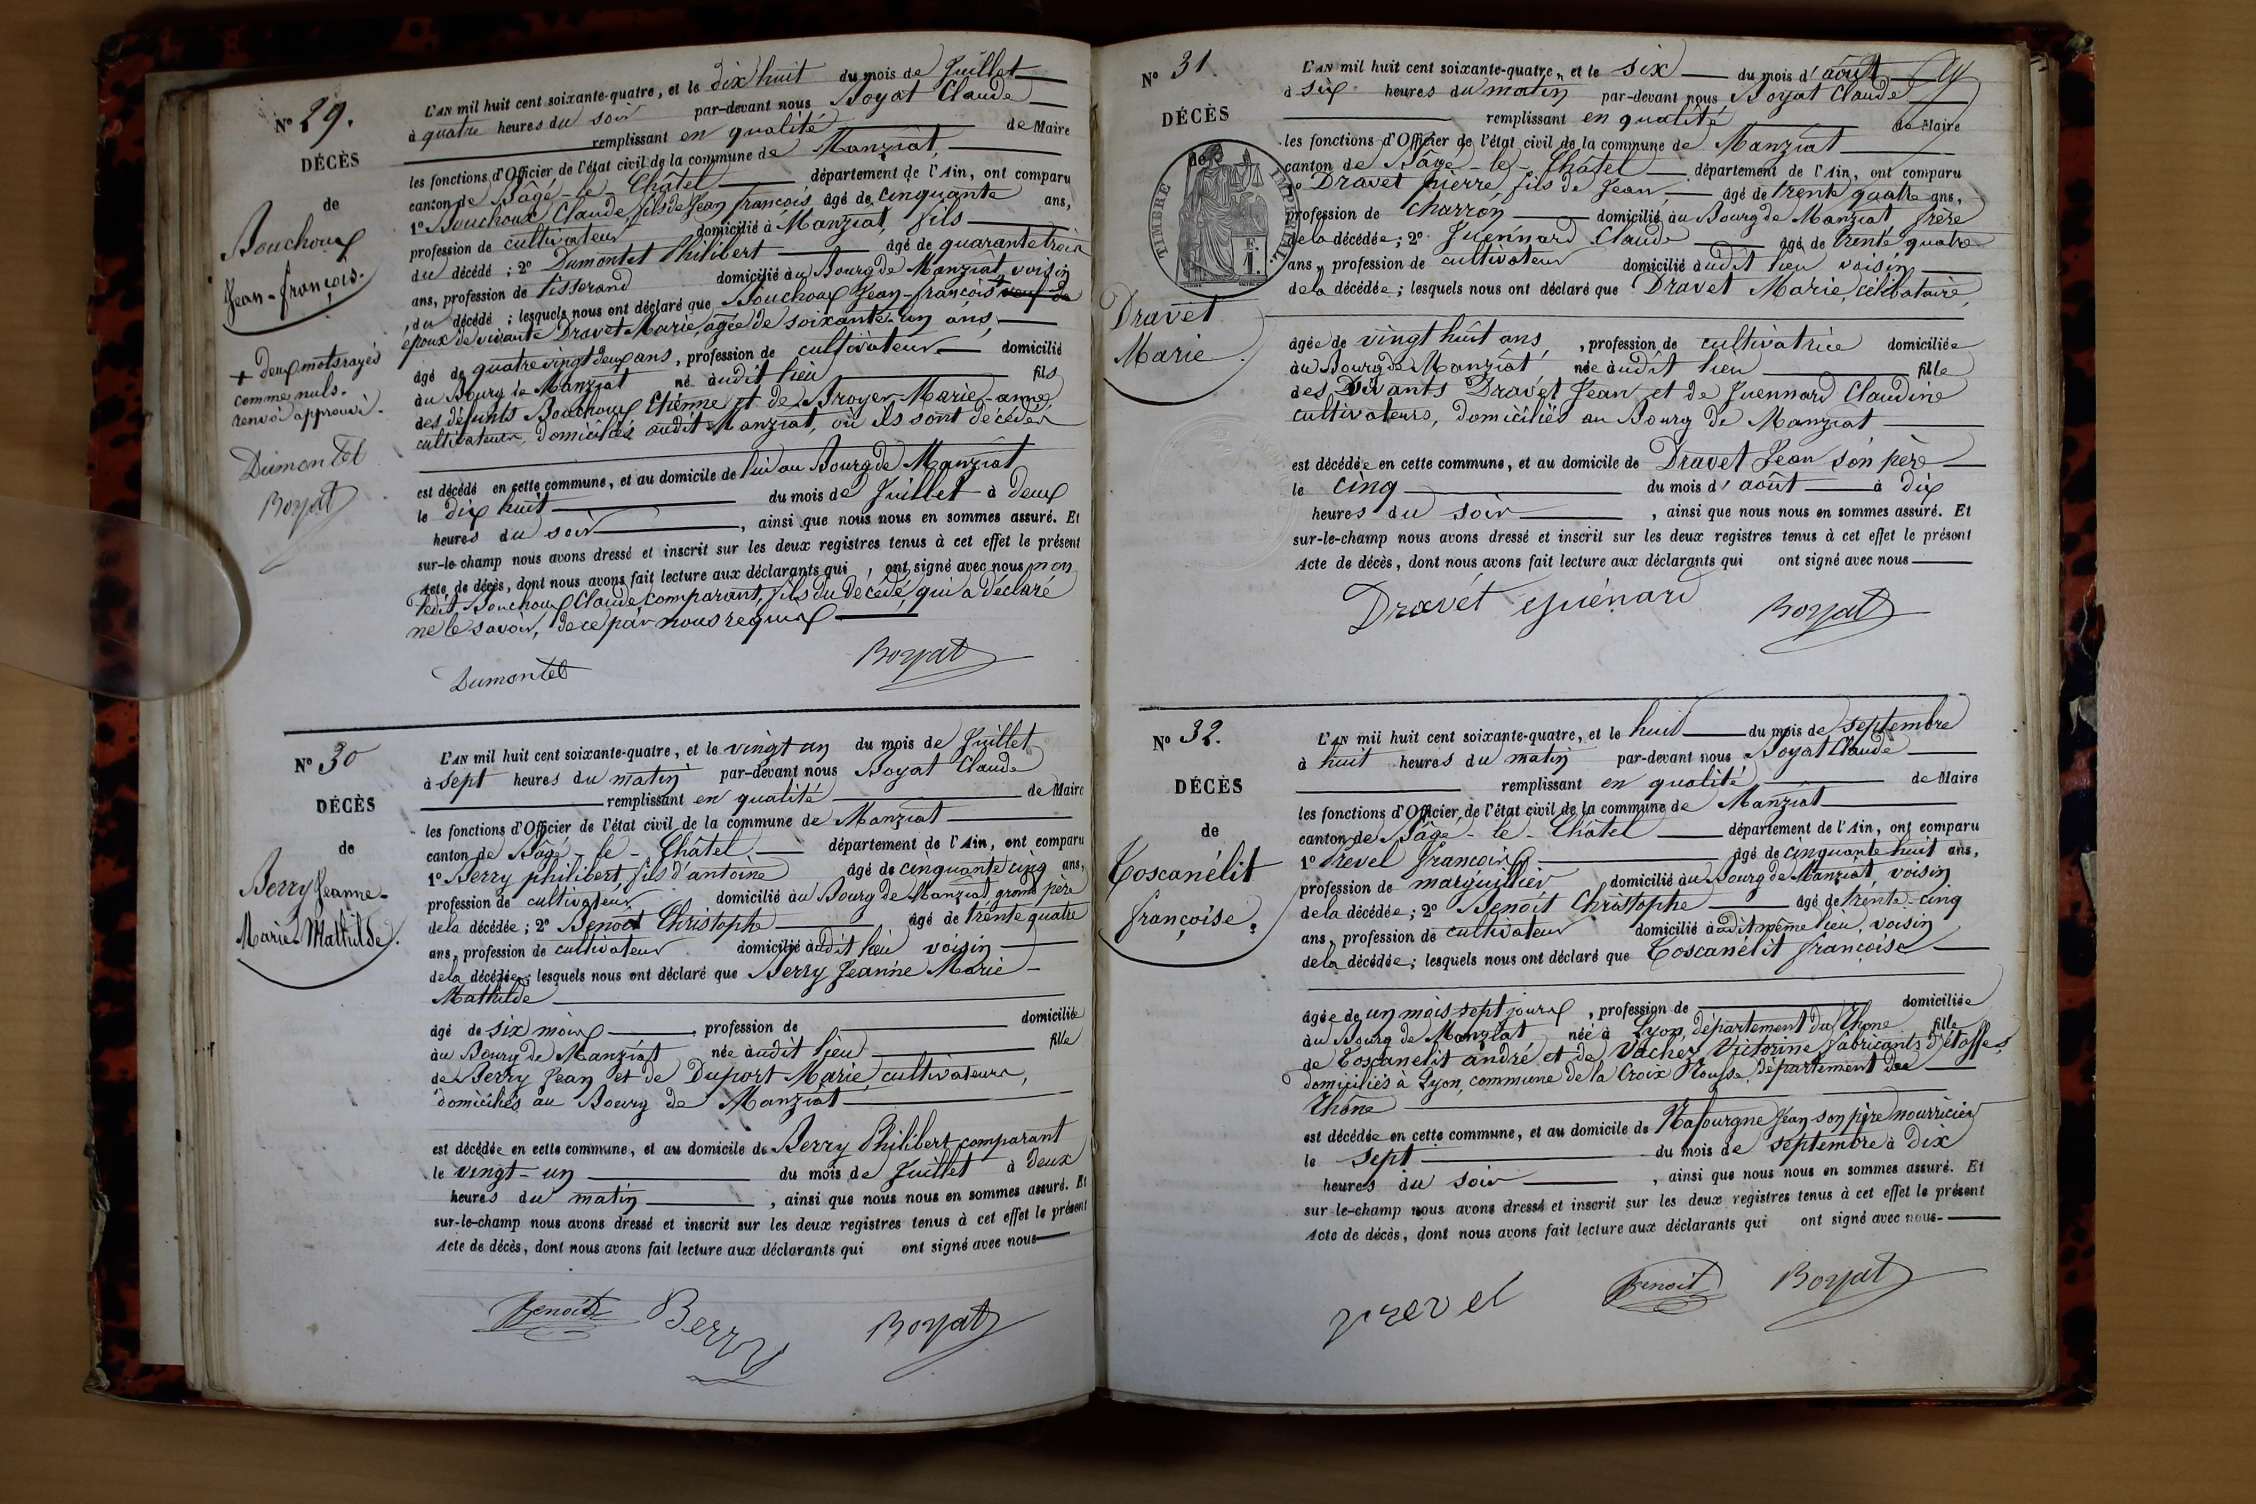 N° 29.
DÉCÈS
de
Bouchoux
Jean-françois.
+ deux mots rayés
comme nuls.
renvoi approuvé.
Dumontet
Boyat
L'AN mil huit cent soixante-quatre, et le dix huit du mois de Juillet
à quatre heures du soir par-devant nous Boyat Claude
remplissant en qualité de Maire
les fonctions d'Officier de l'état civil de la commune de Manziat,
canton de Bâgé-le-Châtel département de l'Ain, ont comparu
1° Bouchoux Claude, fils de Jean françois, âgé de cinquante ans,
profession de cultivateur domicilié à Manziat, fils
du décédé ; 2° Dumontet Philibert âgé de quarante trois
ans, profession de tisserand domicilié au Bourg de Manziat, voisin
, du décédé ; lesquels nous ont déclaré que Bouchoux Jean-françois + veuf de
époux de vivante Dravet Marie, âgée de soixante-un ans,
âgé de quatre vingt deux ans, profession de cultivateur domicilié
au Bourg de Manziat né audit lieu fils
des défunts Bouchoux Etienne et de Broyer Marie-anne,
cultivateurs, domiciliés audit Manziat, où ils sont décédés
est décédé en cette commune, et au domicile de lui au Bourg de Manziat
le dix huit du mois de Juillet à deux
heures du soir, ainsi que nous nous en sommes assuré. Et
sur-le-champ nous avons dressé et inscrit sur les deux registres tenus à cet effet le présent
Acte de décès, dont nous avons fait lecture aux déclarants qui, ont signé avec nous non
ledit Bouchoux Claude comparant, fils du décédé, qui a déclaré
ne le savoir, de ce par nous requis
Dumontet Boyat
N° 30
DÉCÈS
de
Berry Jeanne-
Marie-Mathilde.
L'AN mil huit cent soixante-quatre, et le vingt un du mois de Juillet
à sept heures du matin par-devant nous Boyat Claude
remplissant en qualité de Maire
les fonctions d'Officier de l'état civil de la commune de Manziat
canton de Bâgé-le-Châtel département de l'Ain, ont comparu
1° Berry philibert, fils d'antoine âgé de cinquante cinq ans,
profession de cultivateur domicilié au Bourg de Manziat, grand père
de la décédée ; 2° Benoit Christophe âgé de trente quatre
ans, profession de cultivateur domicilié audit lieu voisin
de la décédée ; lesquels nous ont déclaré que Berry Jeanne Marie-
Mathilde
âgé de six mois profession de domiciliée
au Bourg de Manziat née audit lieu fille
de Berry Jean et de Duport Marie, cultivateurs,
domiciliés au Bourg de Manziat
est décédée en cette commune, et au domicile de Berry Philibert, comparant
le vingt-un du mois de Juillet à deux
heures du matin, ainsi que nous nous en sommes assuré. Et
sur-le-champ nous avons dressé et inscrit sur les deux registres tenus à cet effet le présent
Acte de décès, dont nous avons fait lecture aux déclarants qui ont signé avec nous
Benoit Berry Boyat
N° 31.
DÉCÈS
de
TIMBRE IMPÉRIAL
F.
1.
Dravet
Marie.
L'AN mil huit cent soixante-quatre, et le six du mois d'août
à six heures du matin par-devant nous Boyat Claude
remplissant en qualité de Maire
les fonctions d'Officier de l'état civil de la commune de Manziat
canton de Bâgé-le-Châtel département de l'Ain, ont comparu
1° Dravet pierre, fils de Jean, âgé de trente quatre ans,
profession de charron domicilié au Bourg de Manziat frère
de la décédée ; 2° Guennard Claude âgé de trente quatre
ans, profession de cultivateur domicilié audit lieu voisin
de la décédée ; lesquels nous ont déclaré que Dravet Marie, célibataire,
âgée de vingt huit ans, profession de cultivatrice domiciliée
au Bourg de Manziat, née audit lieu fille
des vivants Dravet Jean et de Guennard Claudine
cultivateurs, domiciliés au Bourg de Manziat
est décédée en cette commune, et au domicile de Dravet Jean son père
le cinq du mois d'août à dix
heures du soir, ainsi que nous nous en sommes assuré. Et
sur-le-champ nous avons dressé et inscrit sur les deux registres tenus à cet effet le présent
Acte de décès, dont nous avons fait lecture aux déclarants qui ont signé avec nous
Dravet Guénard Boyat
N° 32.
DÉCÈS
de
Toscanélit
françoise.
L'AN mil huit cent soixante-quatre, et le huit du mois de septembre
à huit heures du matin par-devant nous Boyat Claude
remplissant en qualité de Maire
les fonctions d'Officier de l'état civil de la commune de Manziat
canton de Bâgé-le-Châtel département de l'Ain, ont comparu
1° Prevel françois âgé de cinquante huit ans,
profession de marguillier domicilié au Bourg de Manziat voisin
de la décédée ; 2° Benoit Christophe âgé de trente-cinq
ans, profession de cultivateur domicilié audit même lieu, voisin
de la décédée ; lesquels nous ont déclaré que Toscanélit françoise
âgée de un mois sept jours, profession de domiciliée
au Bourg de Manziat née à Lyon, département du Rhône fille
de Toscanélit andré et de Vachez Victorine fabricants d'étoffes,
domiciliés à Lyon, commune de la Croix Rousse, département du
Rhône
est décédée en cette commune, et au domicile de Rafourgne Jean son père nourricier
le sept du mois de septembre à dix
heures du soir, ainsi que nous nous en sommes assuré. Et
sur-le-champ nous avons dressé et inscrit sur les deux registres tenus à cet effet le présent
Acte de décès, dont nous avons fait lecture aux déclarants qui ont signé avec nous.
prevel Benoit Boyat